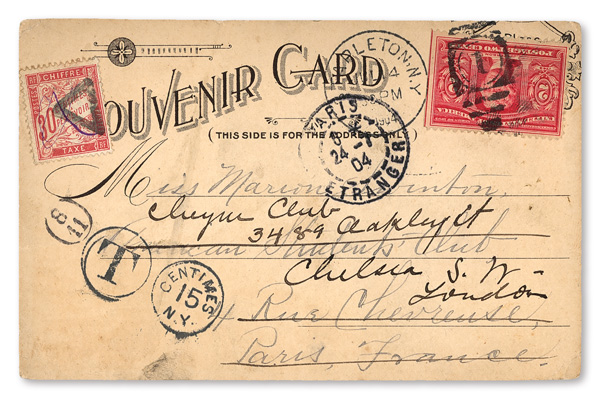 SOUVENIR CARD
(THIS SIDE IS FOR THE ADDRESS ONLY)
RF CHIFFRE RF
30
TAXE
PLETON, N.Y.
4
PM
PARIS
24
04
ETRANGER
POSTAGE TWO CENTS
2 2
Miss Marion
Cheyne Club
3489 Oakley St
Students Club
Chelsea S. W.
London
4 Rue Chevreuse,
Paris, France.
8
11
T
CENTIMES
15
N.Y.